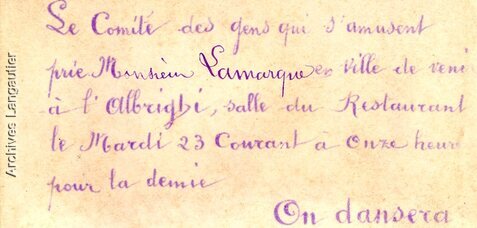 Le Comité des gens qui s'amusent
prie Monsieur Lamarque en Ville de veni
à l'Albrighi, salle du Restaurant
le Mardi 23 Courant à Onze heur
pour la demie
On dansera
Archives Langautier